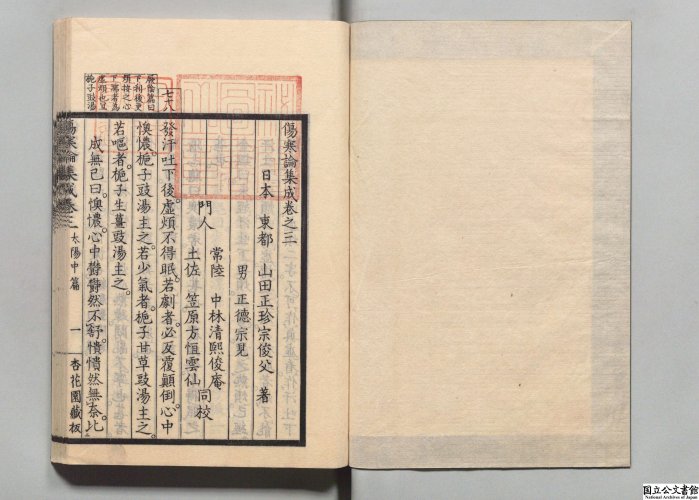 傷寒論集成卷之三
日本 東都 山田正珍宗俊父 著
男 正德宗見
門人 常陸 中林清熙俊庵
土佐 笠原方恒雲仙 同校
七八
發汗吐下後。虛煩不得眠。若劇者。必反覆顚倒。心中
懊憹。梔子豉湯主之。若少氣者。梔子甘草豉湯主之。
若嘔者。梔子生薑豉湯主之。
成無己曰。懊憹。心中鬱鬱然不舒。憒憒然無奈。比
厥陰篇曰
下利後更
煩按之心
下濡者爲
虛煩也宜
梔子豉湯
傷寒論集成卷三 太陽中篇 一 杏花園藏板
国立公文書館
National Archives of Japan